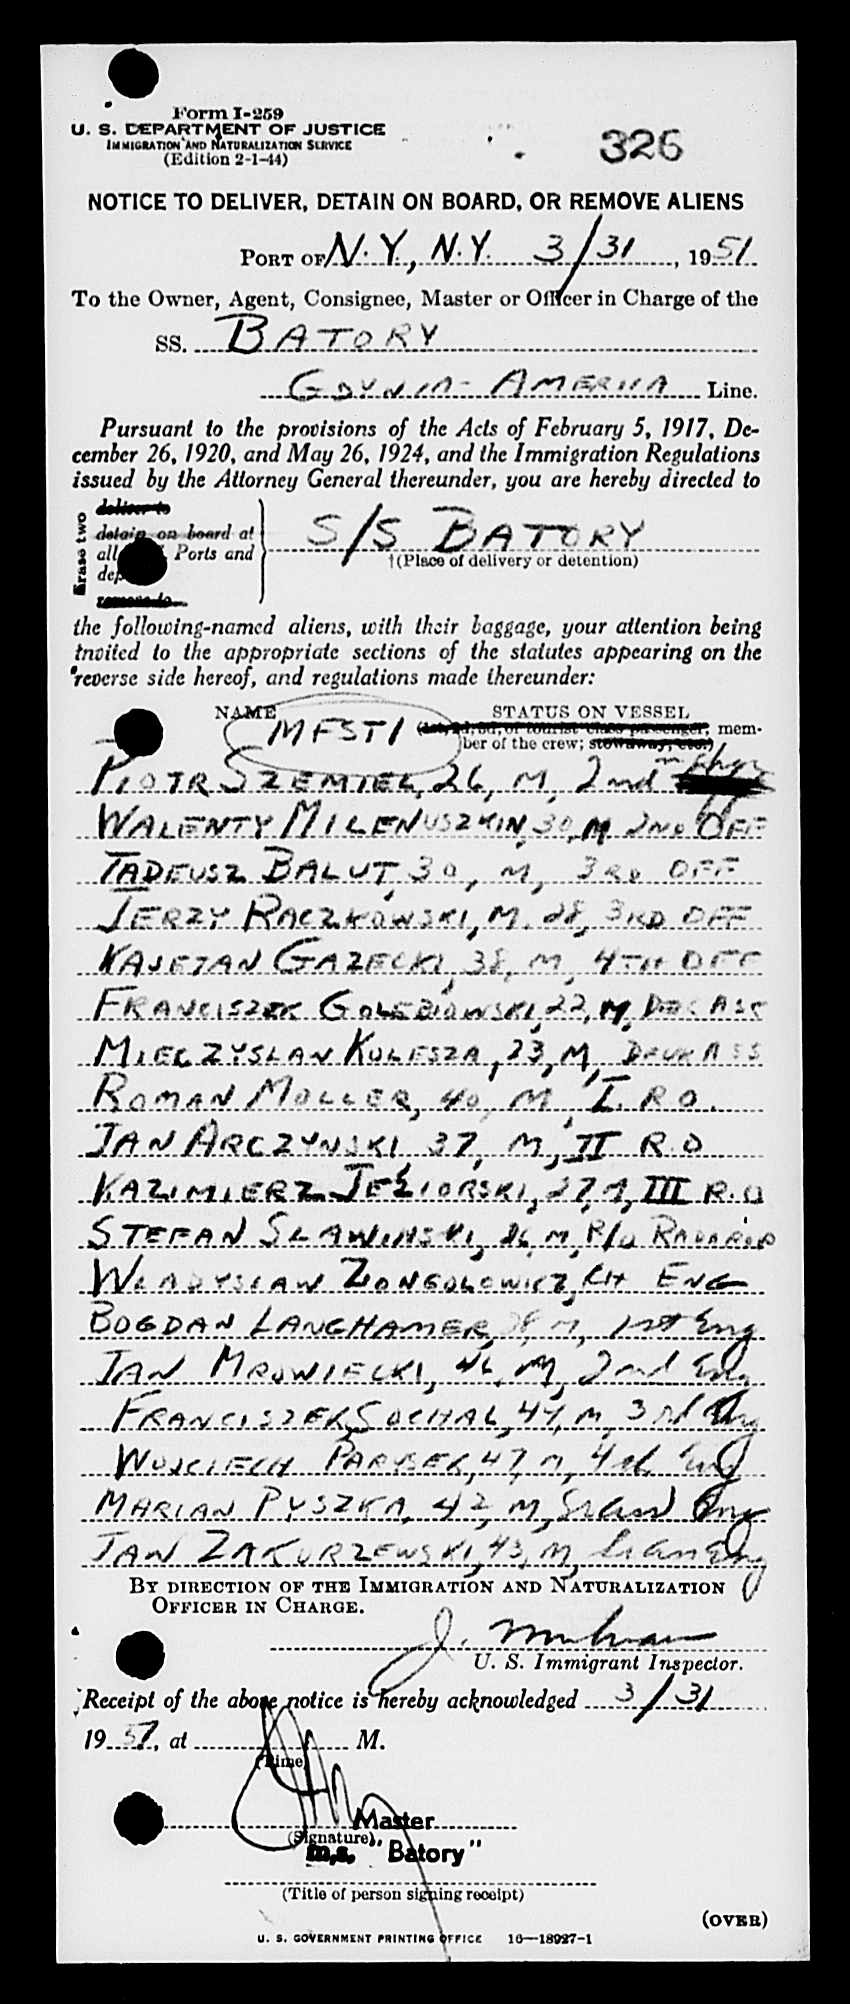 Form I-259
U. S. DEPARTMENT OF JUSTICE
IMMIGRATION AND NATURALIZATION SERVICE
(Edition 2-1-44)
326
NOTICE TO DELIVER, DETAIN ON BOARD, OR REMOVE ALIENS
PORT OF N.Y., N.Y. 3/31, 1951
To the Owner, Agent, Consignee, Master or Officer in Charge of the
SS. BATORY
GDYNIA-AMERICA Line.
Pursuant to the provisions of the Acts of February 5, 1917, De-
cember 26, 1920, and May 26, 1924, and the Immigration Regulations
issued by the Attorney General thereunder, you are hereby directed to
Erase two
deliver to
detain on board at
all Ports and
S/S BATORY
†(Place of delivery or detention)
remove to
the following-named aliens, with their baggage, your attention being
invited to the appropriate sections of the statutes appearing on the
reverse side hereof, and regulations made thereunder:
NAME
STATUS ON VESSEL
MFST 1
(1st, 2d, 3d, or tourist class passenger; mem-
ber of the crew; stowaway, etc.)
PIOTR SZEMIEL, 26, M, 2nd
WALENTY MILENUSZKIN, 30, M 2ND OFF
TADEUSZ BALUT, 30, M, 3RD OFF
JERZY RACZKOWSKI, M. 28, 3RD OFF
KAJETAN GAZECKI, 38, M, 4TH OFF
FRANCISZEK GOLEBIOWSKI, 22, M, DECK ASS
MIECZYSLAN KULESZA, 23, M, DECK ASS
ROMAN MOLLER, 40, M, I. R.O.
JAN ARCZYNSKI, 37, M, II R.O
KAZIMIERZ JEZIORSKI, 27, M, III R.O
STEFAN SLAWINSKI, 26, M, R/O
WLADYSLAW ZONGOLOWICZ, CH ENG
BOGDAN LANGHAMER, M, 1st Eng
JAN MROWIECKI, 46, M, 2nd Eng
FRANCISZEK SOCHAL, 44, M, 3rd Eng
WOJCIECH PARYSEK, 47, M, 4th Eng
MARIAN PYSZKA, 42, M, Eng
JAN ZAKURZEWSKI, 43, M, Eng
BY DIRECTION OF THE IMMIGRATION AND NATURALIZATION
OFFICER IN CHARGE.
J.
U. S. Immigrant Inspector.
Receipt of the above notice is hereby acknowledged 3/31
1951, at M.
(Time)
Master
(Signature)
m.s. "Batory"
(Title of person signing receipt)
(OVER)
U. S. GOVERNMENT PRINTING OFFICE 16—18927-1